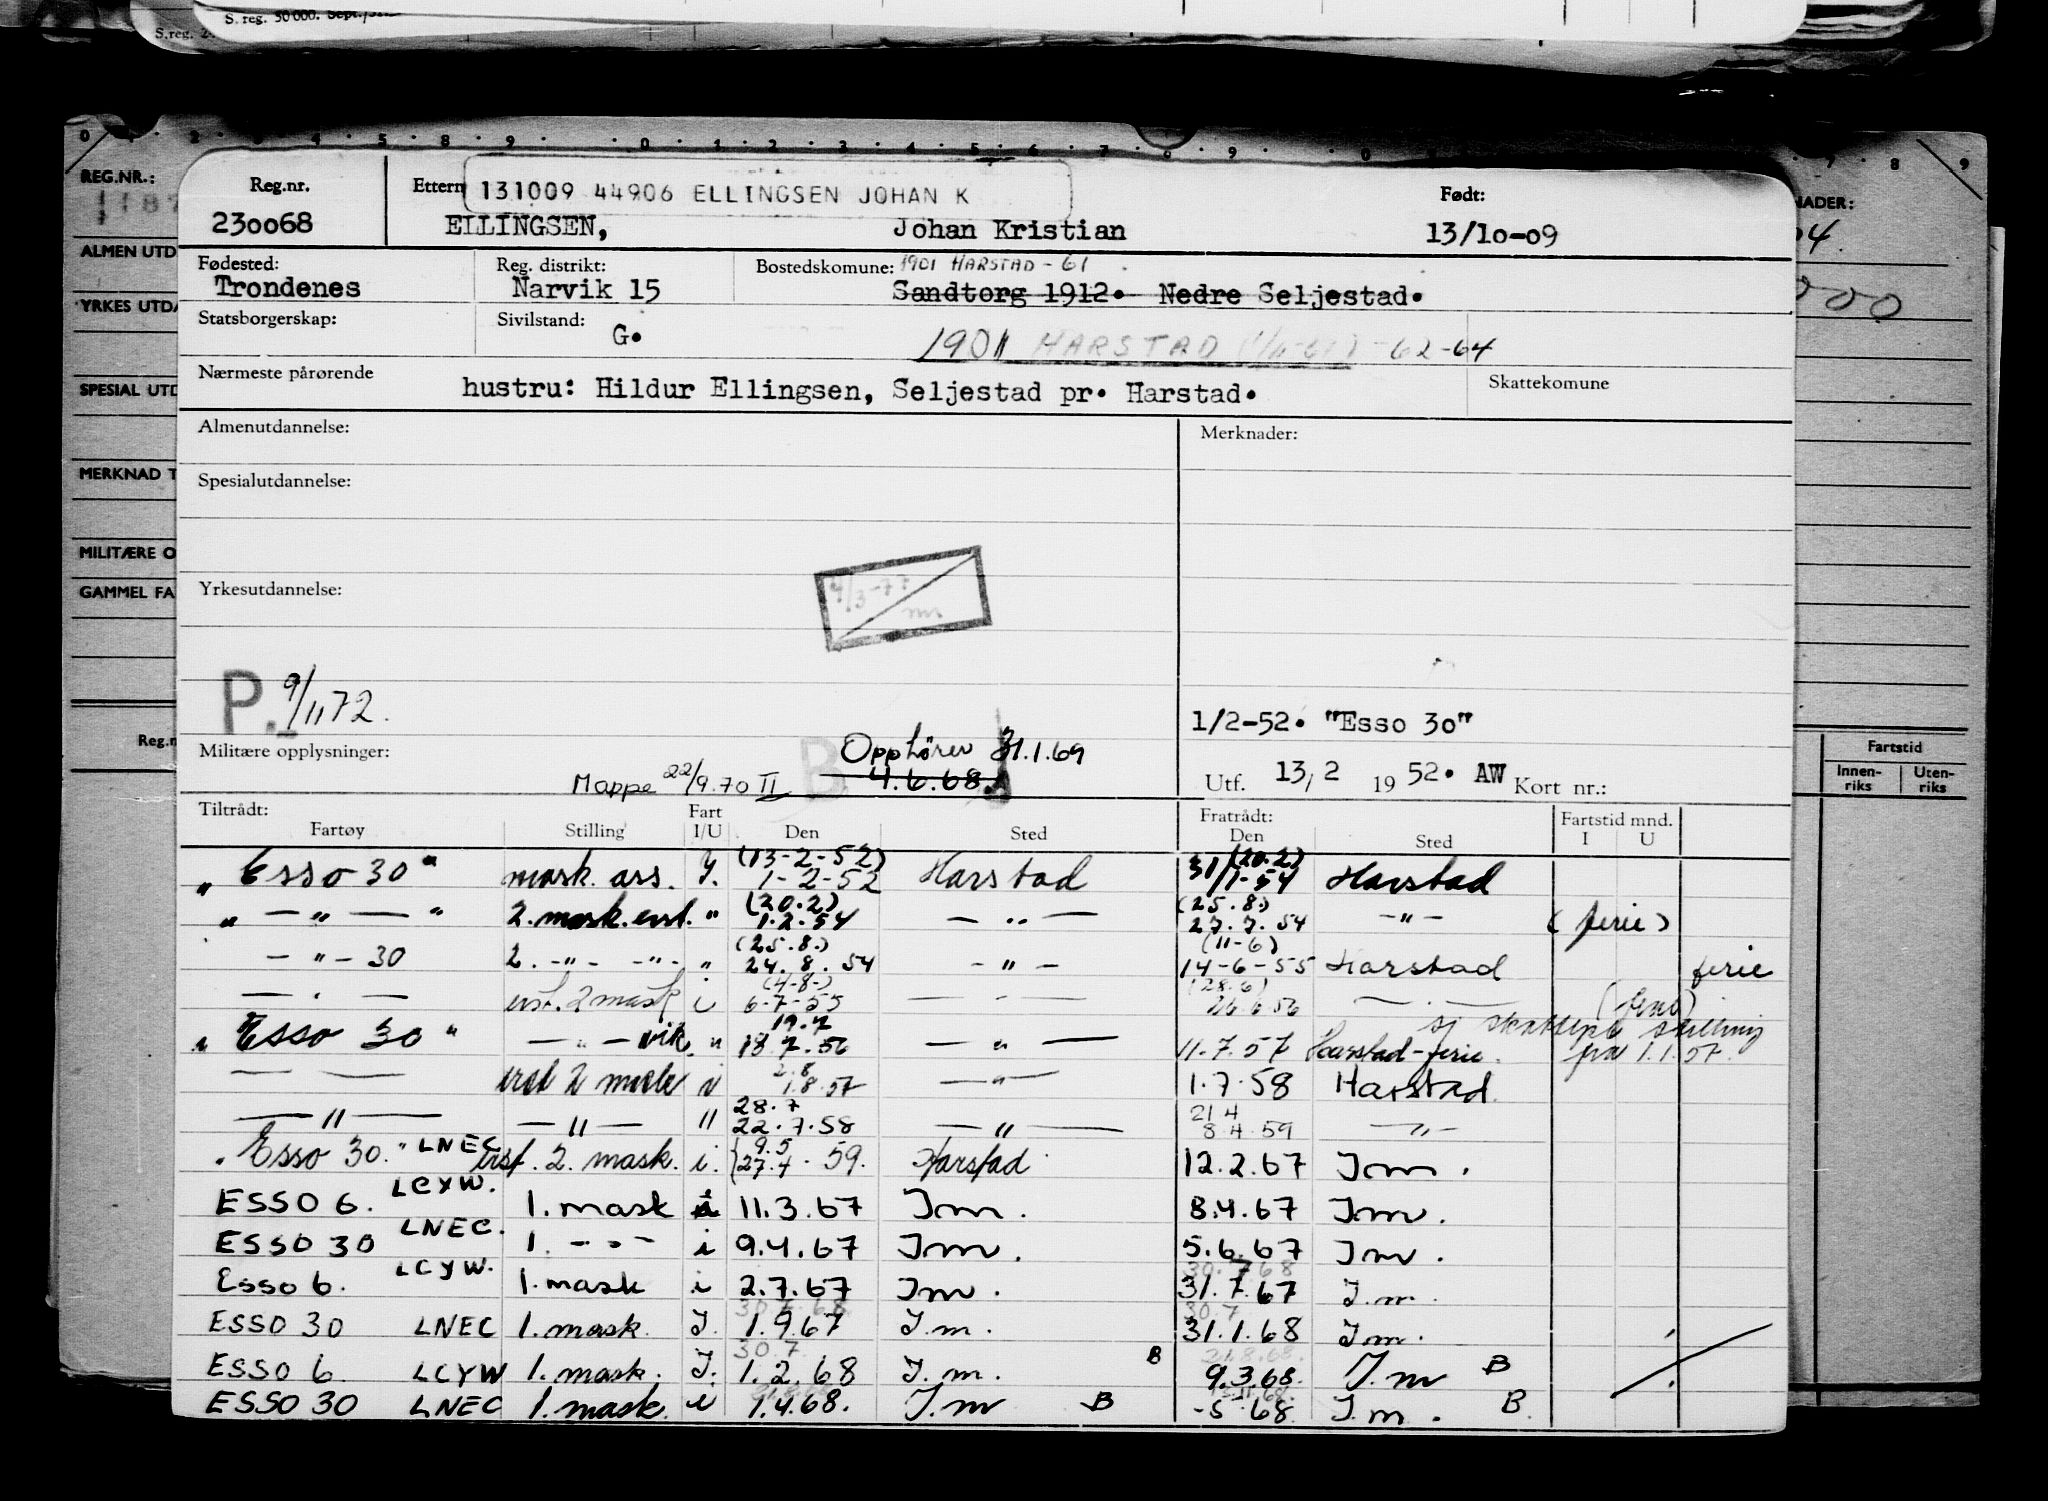 S. reg. 50 000. Sept./52
S.reg. 2
REG.NR.:
ALMEN UTD
YRKES UTDA
SPESIAL UTD
MERKNAD T
MILITÆRE O
GAMMEL FA
Reg.n
NADER:
Fartstid
Innen-riks Uten-riks
Reg.nr. Ettern 131009 44906 ELLINGSEN JOHAN K Født:
230068 ELLINGSEN, Johan Kristian 13/10-09
Fødested: Reg. distrikt: Bostedskomune: 1901 HARSTAD - 61
Trondenes Narvik 15 Sandtorg 1912. Nedre Seljestad.
Statsborgerskap: Sivilstand: G. 1901 HARSTAD (1/6-61) - 62-64
Nærmeste pårørende hustru: Hildur Ellingsen, Seljestad pr. Harstad. Skattekomune
Almenutdannelse: Merknader:
Spesialutdannelse:
4/3-77
Yrkesutdannelse:
P. 9/11 72.
1/2-52. "Esso 30"
Militære opplysninger: B Opphører 31.1.69
Mappe 22/9.70 II 4.6.68. Utf. 13/2 1952. AW Kort nr.:
Tiltrådt: Fratrådt: Fartstid mnd.
Fartøy Stilling Fart I/U Den Sted Den Sted I U
(13-2-52) (20.2)
"Esso 30" mask. ass. I. 1-2-52 Harstad 31/1-54 Harstad
(20.2) (25.8.)
" — " — " 2. mask. " 1.2.54 — " — 27.7.54 — " — (ferie)
(25.8.) (11-6)
— " — 30 2. — " — — " — " 24.8.54 — " — 14-6-55 Harstad ferie
(4-8-) (28.6)
— " — 2 mask i 6-7-55 — — 26.6.56 — " —
19.7
"Esso 30" — " — vik. " 18.7.56 — " — 11.7.57 Harstad-ferie. stilling fra 1.1.57.
2.8
— — 2 mask i 1.8.57 — " — 1.7.58 Harstad.
28.7 21 4
— " — — " — " 22.7.58 — " — 8.4.59 — " —
9.5
"Esso 30." LNEC 2. mask. i. 27.4.59. Harstad 12.2.67 Im.
ESSO 6. LCYW. 1. mask i 11.3.67 Im. 8.4.67 Im.
ESSO 30 LNEC. 1. — " — i 9.4.67 Im. 5.6.67 Im.
30.7.68
Esso 6. LCYW. 1. mask i 2.7.67 Im. 31.7.67 I.m.
30.7.68. 30.7
ESSO 30 LNEC 1. mask. I. 1.9.67 I.m. 31.1.68 I.m.
30.7.
ESSO 6 LCYW 1. mask. I. 1.2.68 I.m. B 9.3.68. I.m B
ESSO 30 LNEC 1. mask. i 1.4.68. I.m B -5 68 I.m. B.